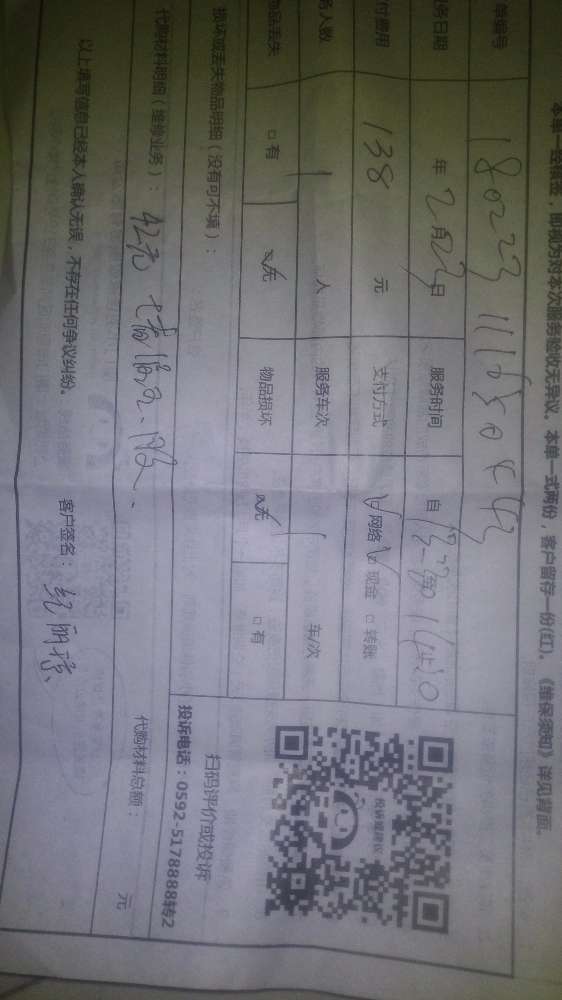 本单一经核签，即视为对本次服务验收无异议。本单一式两份，客户留存一份(红)。《维保须知》详见背面。
单编号 180223
务日期 年 2月23日 服务时间 自
付费用 138 元 支付方式 网络 现金 转账
务人数 1 人 服务车次 1 车/次
物品丢失 有 无 物品损坏 无 有
损坏或丢失物品明细（没有可不填）：
代购材料明细（维修业务）：
代购材料总额： 元
以上填写信息已经本人确认无误，不存在任何争议纠纷。 客户签名：
投诉建议
扫码评价或投诉
投诉电话：0592-5178888转2